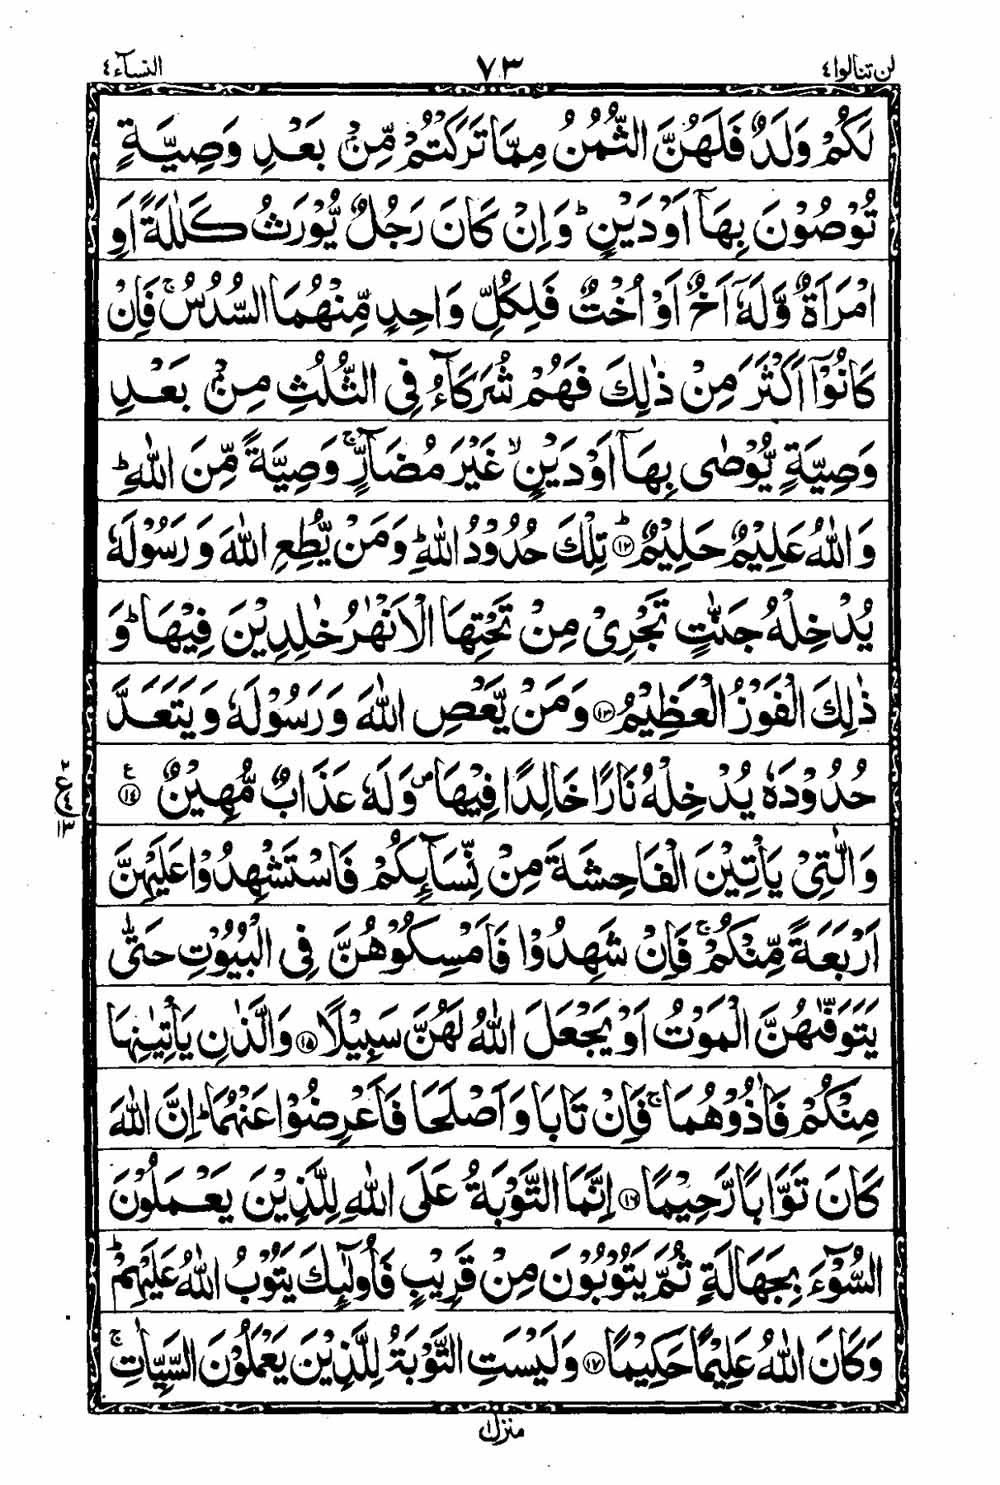 لن تنالوا ٤ ٧٣ النسآء ٤
لَكُمْ وَلَدٌ فَلَهُنَّ الثُّمُنُ مِمَّا تَرَكْتُمْ مِّنْۢ بَعْدِ وَصِيَّةٍ
تُوْصُوْنَ بِهَاۤ اَوْ دَيْنٍ ؕ وَاِنْ كَانَ رَجُلٌ يُّوْرَثُ كَلٰلَةً اَوِ
امْرَاَةٌ وَّلَهٗۤ اَخٌ اَوْ اُخْتٌ فَلِكُلِّ وَاحِدٍ مِّنْهُمَا السُّدُسُ ۚ فَاِنْ
كَانُوْۤا اَكْثَرَ مِنْ ذٰلِكَ فَهُمْ شُرَكَآءُ فِي الثُّلُثِ مِنْۢ بَعْدِ
وَصِيَّةٍ يُّوْصٰى بِهَاۤ اَوْ دَيْنٍ ۙ غَيْرَ مُضَآرٍّ ۚ وَصِيَّةً مِّنَ اللّٰهِ ؕ
وَاللّٰهُ عَلِيْمٌ حَلِيْمٌ ؕ ۝١٢ تِلْكَ حُدُوْدُ اللّٰهِ ؕ وَمَنْ يُّطِعِ اللّٰهَ وَرَسُوْلَهٗ
يُدْخِلْهُ جَنّٰتٍ تَجْرِيْ مِنْ تَحْتِهَا الْاَنْهٰرُ خٰلِدِيْنَ فِيْهَا ؕ وَ
ذٰلِكَ الْفَوْزُ الْعَظِيْمُ ۝١٣ وَمَنْ يَّعْصِ اللّٰهَ وَرَسُوْلَهٗ وَيَتَعَدَّ
حُدُوْدَهٗ يُدْخِلْهُ نَارًا خَالِدًا فِيْهَا ۪ وَلَهٗ عَذَابٌ مُّهِيْنٌ ۝١٤ ع
وَالّٰتِيْ يَاْتِيْنَ الْفَاحِشَةَ مِنْ نِّسَآئِكُمْ فَاسْتَشْهِدُوْا عَلَيْهِنَّ
اَرْبَعَةً مِّنْكُمْ ۚ فَاِنْ شَهِدُوْا فَاَمْسِكُوْهُنَّ فِي الْبُيُوْتِ حَتّٰى
يَتَوَفّٰىهُنَّ الْمَوْتُ اَوْ يَجْعَلَ اللّٰهُ لَهُنَّ سَبِيْلًا ۝١٥ وَالَّذٰنِ يَاْتِيٰنِهَا
مِنْكُمْ فَاٰذُوْهُمَا ۚ فَاِنْ تَابَا وَاَصْلَحَا فَاَعْرِضُوْا عَنْهُمَا ؕ اِنَّ اللّٰهَ
كَانَ تَوَّابًا رَّحِيْمًا ۝١٦ اِنَّمَا التَّوْبَةُ عَلَى اللّٰهِ لِلَّذِيْنَ يَعْمَلُوْنَ
السُّوْٓءَ بِجَهَالَةٍ ثُمَّ يَتُوْبُوْنَ مِنْ قَرِيْبٍ فَاُولٰٓئِكَ يَتُوْبُ اللّٰهُ عَلَيْهِمْ ؕ
وَكَانَ اللّٰهُ عَلِيْمًا حَكِيْمًا ۝١٧ وَلَيْسَتِ التَّوْبَةُ لِلَّذِيْنَ يَعْمَلُوْنَ السَّيِّاٰتِ ۚ
منزل ١